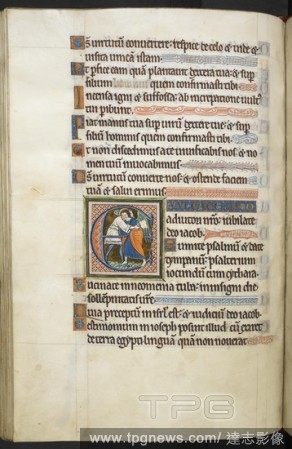 Ds uirtutum conuertere: respice de celo & uide &
uisita uineam istam.
Et perfice eam quam plantauit dextera tua: & sup
filium quem confirmasti tibi
Incensa igni & suffossa: ab increpatione uult
tui peribunt.
Fiat manus tua sup uirum dextere tue: & sup
filium hominis quem confirmasti tibi.
Et non discedimus a te uiuificabis nos: & no
men tuum inuocabimus
Dns uirtutum conuerte nos: & ostende faciem
tuam & salui erimus.
adiutori nro: iubilate
deo iacob.
Sumite psalmum & date
tympanum: psalterium
iocundum cum cythara.
Bucinate in neomenia tuba: in insigni die
sollempnitatis
Quia preceptum in isrl est: & iudicium deo iacob.
Testimonium in ioseph posuit illud cum exiret
de terra egypti: linguam quam non nouerat
TPG
www.tpgnews.com / 達志影像